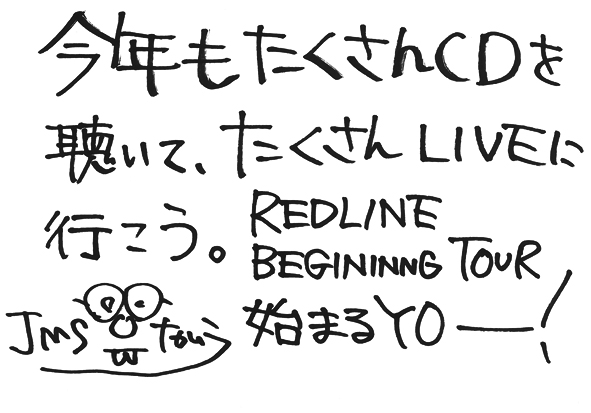 今年もたくさんCDを
聴いて、たくさんLIVEに
行こう。REDLINE
BEGININNG TOUR
始まるYO—!
JMS